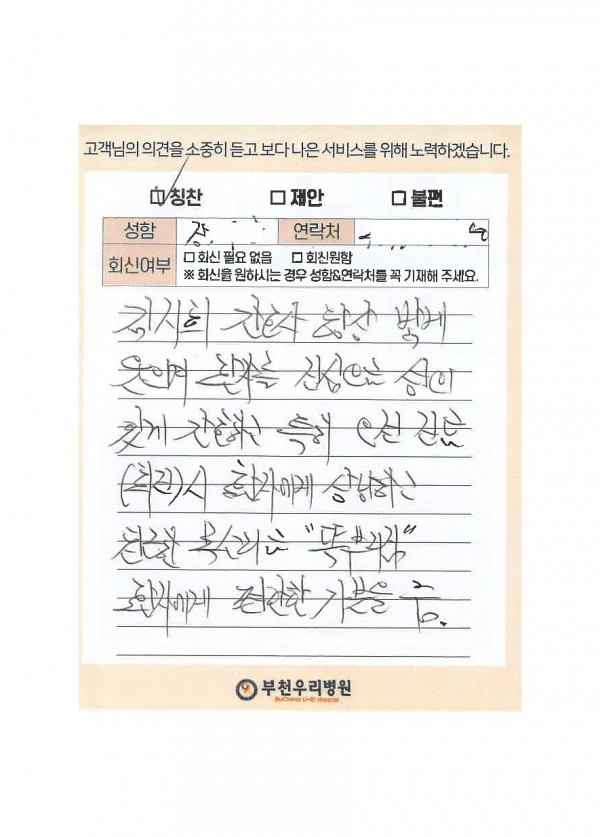 고객님의 의견을 소중히 듣고 보다 나은 서비스를 위해 노력하겠습니다.
칭찬 제안 불편
성함 장 연락처
회신여부 회신 필요 없음 회신원함
※ 회신을 원하시는 경우 성함&연락처를 꼭 기재해 주세요.
김지희 간호사 항상 밝게
웃으며 환자를 진심으로 성의
있게 간호하고 특히 오전
(회진)시 환자에게 상냥하고
친근한 목소리로 "똑부러짐"
환자에게 편안한 기분을 줌.
부천우리병원
BuCheon U-RI Hospital